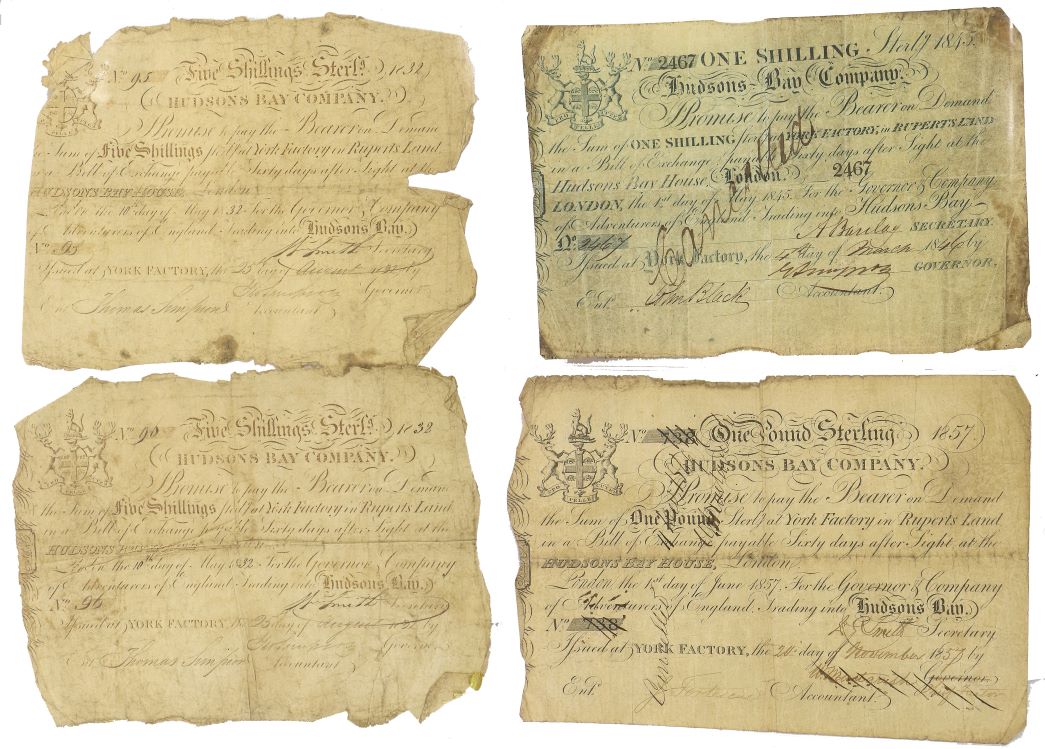 No. 95 Five Shillings Sterlg. 1832
HUDSONS BAY COMPANY.
Promise to pay the Bearer on Demand
the Sum of Five Shillings Sterlg at York Factory in Ruperts Land
in a Bill of Exchange payable Sixty days after Sight at the
HUDSONS BAY HOUSE, London
London the 10th day of May 1832 For the Governor & Company
of Adventurers of England Trading into Hudsons Bay.
No. 95 Wm Smith Secretary
Issued at YORK FACTORY, the 25 day of August 1832 by
Geo Simpson Governor
Ent. Thomas Simpson Accountant
No. 2467 ONE SHILLING Sterlg 1845.
Hudsons Bay Company.
PRO PELLE CUTEM
Promise to pay the Bearer on Demand
the Sum of ONE SHILLING Sterlg at YORK FACTORY, in RUPERTS LAND
in a Bill of Exchange payable Sixty days after Sight at the
Hudsons Bay House, London. 2467
LONDON, the 1st day of May 1845. For the Governor & Company
of Adventurers of England Trading into Hudsons Bay
A Barclay SECRETARY.
No. 2467
Issued at York Factory, the 4th day of March 1846 by
G Simpson GOVERNOR,
Entd. John Black Accountant.
Cancelled
No. 90 Five Shillings Sterlg. 1832
HUDSONS BAY COMPANY.
Promise to pay the Bearer on Demand
the Sum of Five Shillings Sterlg at York Factory in Ruperts Land
in a Bill of Exchange payable Sixty days after Sight at the
HUDSONS BAY HOUSE,
London the 10th day of May 1832 For the Governor & Company
of Adventurers of England Trading into Hudsons Bay.
No. 90 Wm Smith Secretary
Issued at YORK FACTORY the 25 day of August 1832 by
Geo Simpson Governor
Ent. Thomas Simpson Accountant
No. 738 One Pound Sterling 1857.
HUDSONS BAY COMPANY.
Promise to pay the Bearer on Demand
the Sum of One Pound Sterlg at York Factory in Ruperts Land
in a Bill of Exchange payable Sixty days after Sight at the
HUDSONS BAY HOUSE, London
London, the 1st day of June 1857. For the Governor & Company
of Adventurers of England. Trading into Hudsons Bay.
No. 738 Smith Secretary
Issued at YORK FACTORY, the 20 day of November 1857 by
Governor
Entd. Accountant.
Cancelled